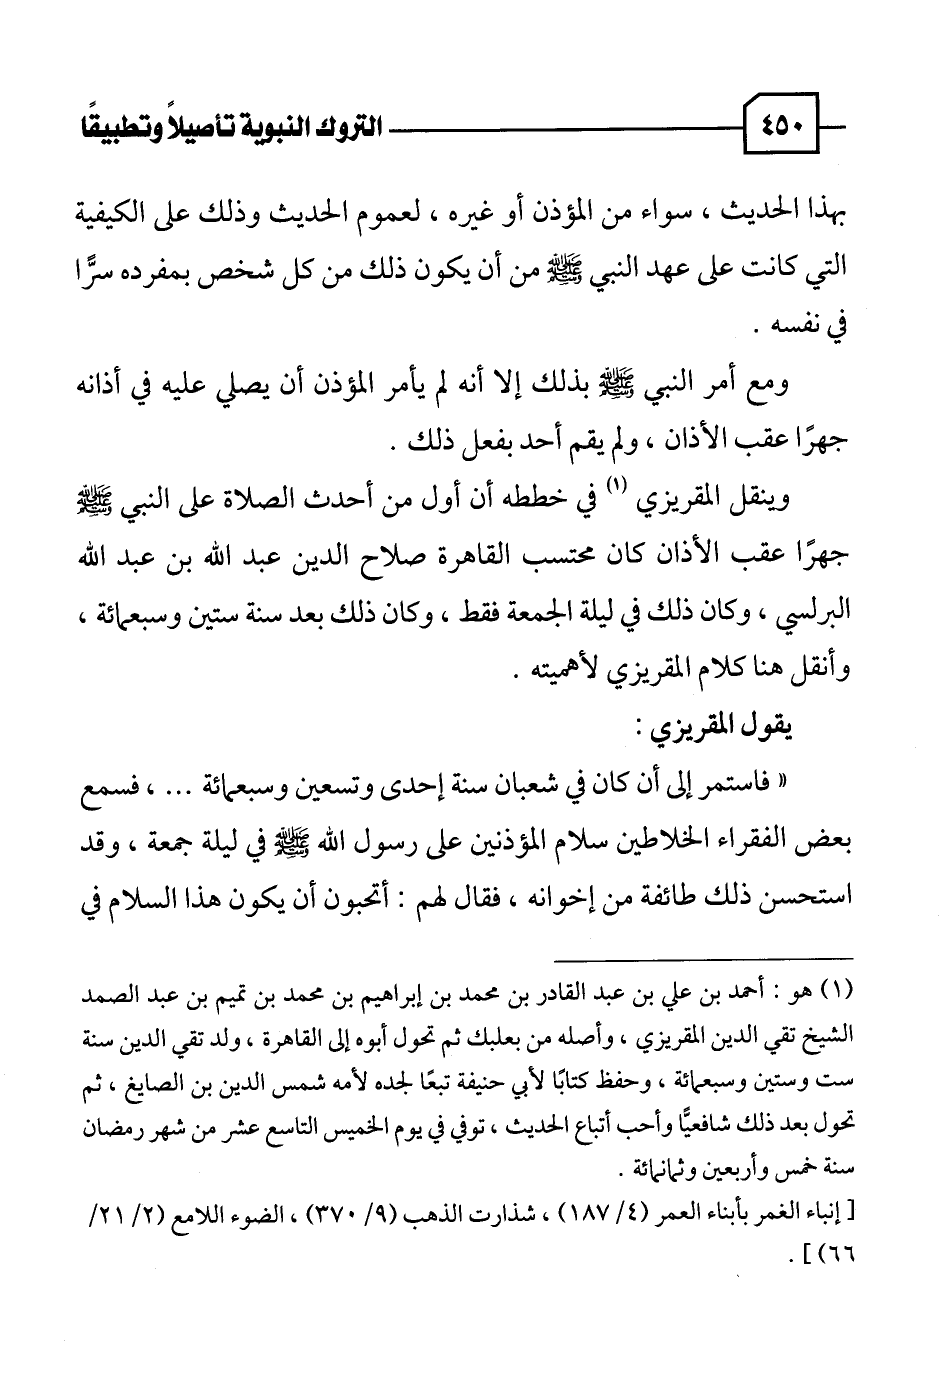 ٤٥٠ التروك النبوية تأصيلاً وتطبيقًا
بهذا الحديث ، سواء من المؤذن أو غيره ، لعموم الحديث وذلك على الكيفية
التي كانت على عهد النبي ﷺ من أن يكون ذلك من كل شخص بمفرده سرًّا
في نفسه .
ومع أمر النبي ﷺ بذلك إلا أنه لم يأمر المؤذن أن يصلي عليه في أذانه
جهرًا عقب الأذان ، ولم يقم أحد بفعل ذلك .
وينقل المقريزي (١) في خططه أن أول من أحدث الصلاة على النبي ﷺ
جهرًا عقب الأذان كان محتسب القاهرة صلاح الدين عبد الله بن عبد الله
البرلسي ، وكان ذلك في ليلة الجمعة فقط ، وكان ذلك بعد سنة ستين وسبعمائة ،
وأنقل هنا كلام المقريزي لأهميته .
يقول المقريزي :
« فاستمر إلى أن كان في شعبان سنة إحدى وتسعين وسبعمائة ... ، فسمع
بعض الفقراء الخلاطين سلام المؤذنين على رسول الله ﷺ في ليلة جمعة ، وقد
استحسن ذلك طائفة من إخوانه ، فقال لهم : أتحبون أن يكون هذا السلام في
(١) هو : أحمد بن علي بن عبد القادر بن محمد بن إبراهيم بن محمد بن تميم بن عبد الصمد
الشيخ تقي الدين المقريزي ، وأصله من بعلبك ثم تحول أبوه إلى القاهرة ، ولد تقي الدين سنة
ست وستين وسبعمائة ، وحفظ كتابًا لأبي حنيفة تبعًا لجده لأمه شمس الدين بن الصايغ ، ثم
تحول بعد ذلك شافعيًّا وأحب أتباع الحديث ، توفي في يوم الخميس التاسع عشر من شهر رمضان
سنة خمس وأربعين وثمانمائة .
[ إنباء الغمر بأبناء العمر (٤/ ١٨٧) ، شذارت الذهب (٩/ ٣٧٠) ، الضوء اللامع (٢/ ٢١/
٦٦) ] .